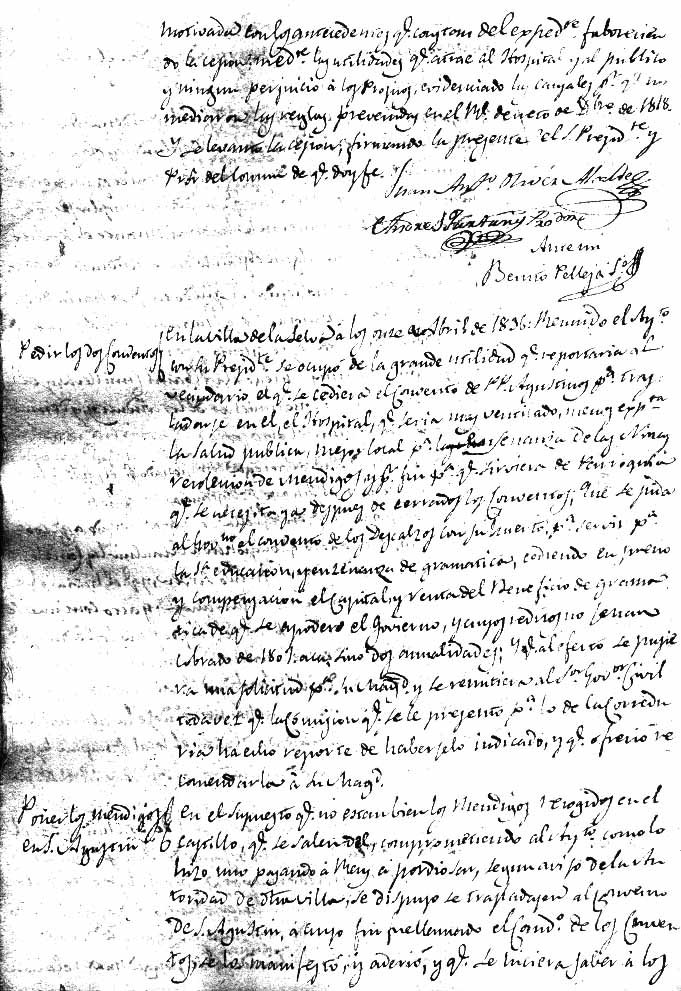 motivada con los antecedentes q.e constan del exped.te favorecien
do la cesion med.te las utilidades q.e atrae al Hospital y al publico
y ningun perjuicio á los Propios, evidenciado las causales p.r q.e no
mediaron las reglas prevenidas en el Rl. decreto de de 1818.
y relevante la cesion; firmando la presente el S. Presid.te y
del comun de q.e doy fe.
Juan Ant.o Olivér Alcalde
Andres Prodom
Ante mi
Benito Pellejá S.o
Pedir los dos Conventos
En la villa de la Selva á los once Abril de 1836: Reunido el Ay.to
con su Presid.te se ocupó de la grande utilidad q.e reportaria al
vecindario el q.e se cediera el Convento de PP. Agustinos p.a tras
ladarse en el, el Hospital, q.e seria mas ventilado, menos exp.ta
la salud publica, mejor local p.a la enseñanza de las Niñas
recoleccion de mendigos, y p.r fin p.a q.e sirviera de Parroquia
q.e se necesita ya despues de cerrados los Conventos; Que se pida
al Gov.no el convento de los Descalzos con su huerto, p.a servir p.a
la educacion, y enseñanza de gramatica, cediendo en precio
y compensacion el Capital, y renta del Beneficio de grama
tica de q.e se apoderó el Govierno, y cuyos reditos no se han
cobrado de 1807. acá sino dos anualidades; Y q.e al efecto se pusie
ra una solicitud p.a su Mag.d y se remitiera al S.or Gov.or Civil
toda vez q.e la Comision q.e se le presentó p.a lo de la Corredu
ria ha echo reporte de haberselo indicado, y q.e ofreció re
comendarla á su Mag.d
Poner los mendigos
en S. Agustin
En el supuesto q.e no estan bien los Mendigos recogidos en el
Castillo, q.e se salen del, comprometiendo al Ay.to como lo
hizo uno pasando á Reus á pordiosar, segun aviso de la Au
toridad de dha villa; se dispuso se trasladasen al Convento
de S. Agustin, á cuyo fin fue llamado el de los Conven
tos, se lo manifestó, y aderió, y q.e se hiciera saber á los